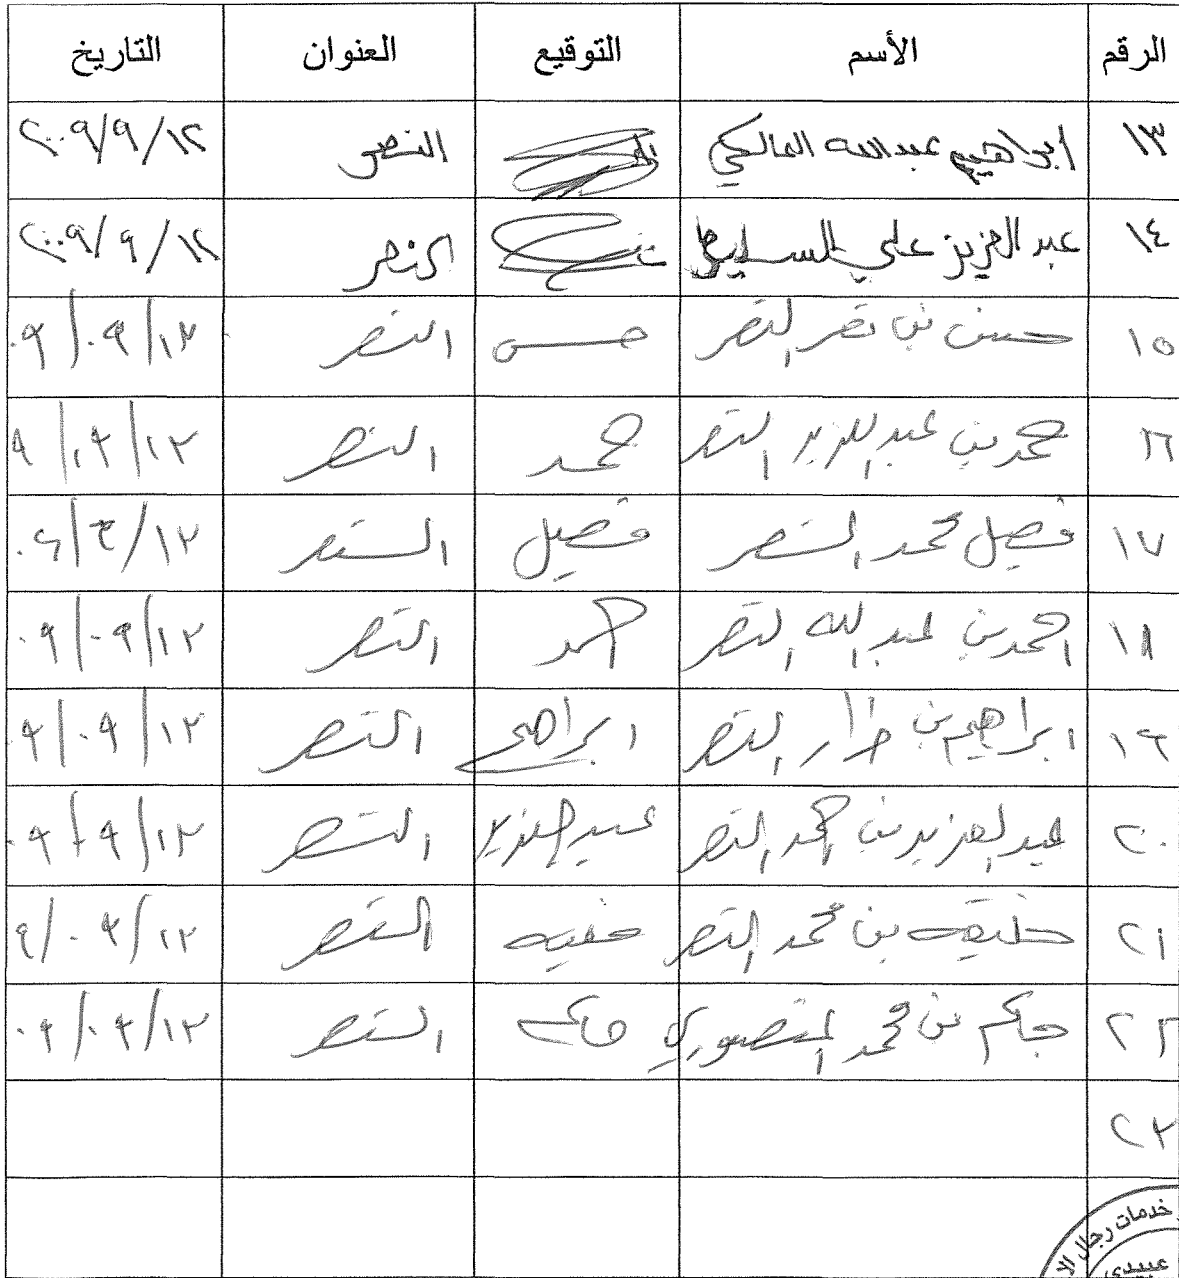 الرقم الأسم التوقيع العنوان التاريخ
١٣ ابراهيم عبدالله المالكي النصر ٢٠٠٩/٩/١٢
١٤ عبد العزيز علي السليطي النصر ٢٠٠٩/٩/١٢
١٥ حسن بن نصر النصر حسن النصر ٠٩/٠٩/١٢
١٦ حمد بن عبد العزيز النصر حمد النصر ٩/٠٩/١٢
١٧ فيصل محمد النصر فيصل النصر
١٨ احمد بن عبد الله النصر احمد النصر ٠٩/٠٩/١٢
١٩ ابراهيم بن النصر ابراهيم النصر ٠٩/٠٩/١٢
٢٠ عبد العزيز بن احمد النصر عبد العزيز النصر ٠٩/٠٩/١٢
٢١ خليفه بن محمد النصر خليفه النصر ٩/٠٩/١٢
٢٢ حاكم بن محمد المنصوري حاكم النصر ٠٩/٠٩/١٢
٢٣
خدمات رجال الا
عبيدي